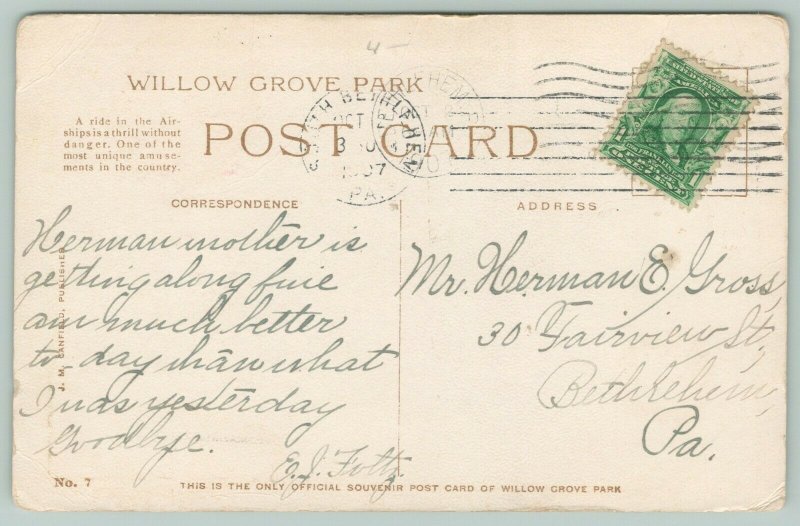 4-
WILLOW GROVE PARK
A ride in the Air-
ships is a thrill without
danger. One of the
most unique amuse-
ments in the country.
POST CARD
SOUTH BETHLEHEM
OCT
3
1907
PA.
CORRESPONDENCE
ADDRESS
Herman mother is
getting along fine
am much better
to-day than what
I was yesterday
Goodbye.
E.J. Foltz.
Mr. Herman E. Gross,
30 Fairview St,
Bethlehem,
Pa.
J. M. CANFIELD, PUBLISHER
No. 7
THIS IS THE ONLY OFFICIAL SOUVENIR POST CARD OF WILLOW GROVE PARK